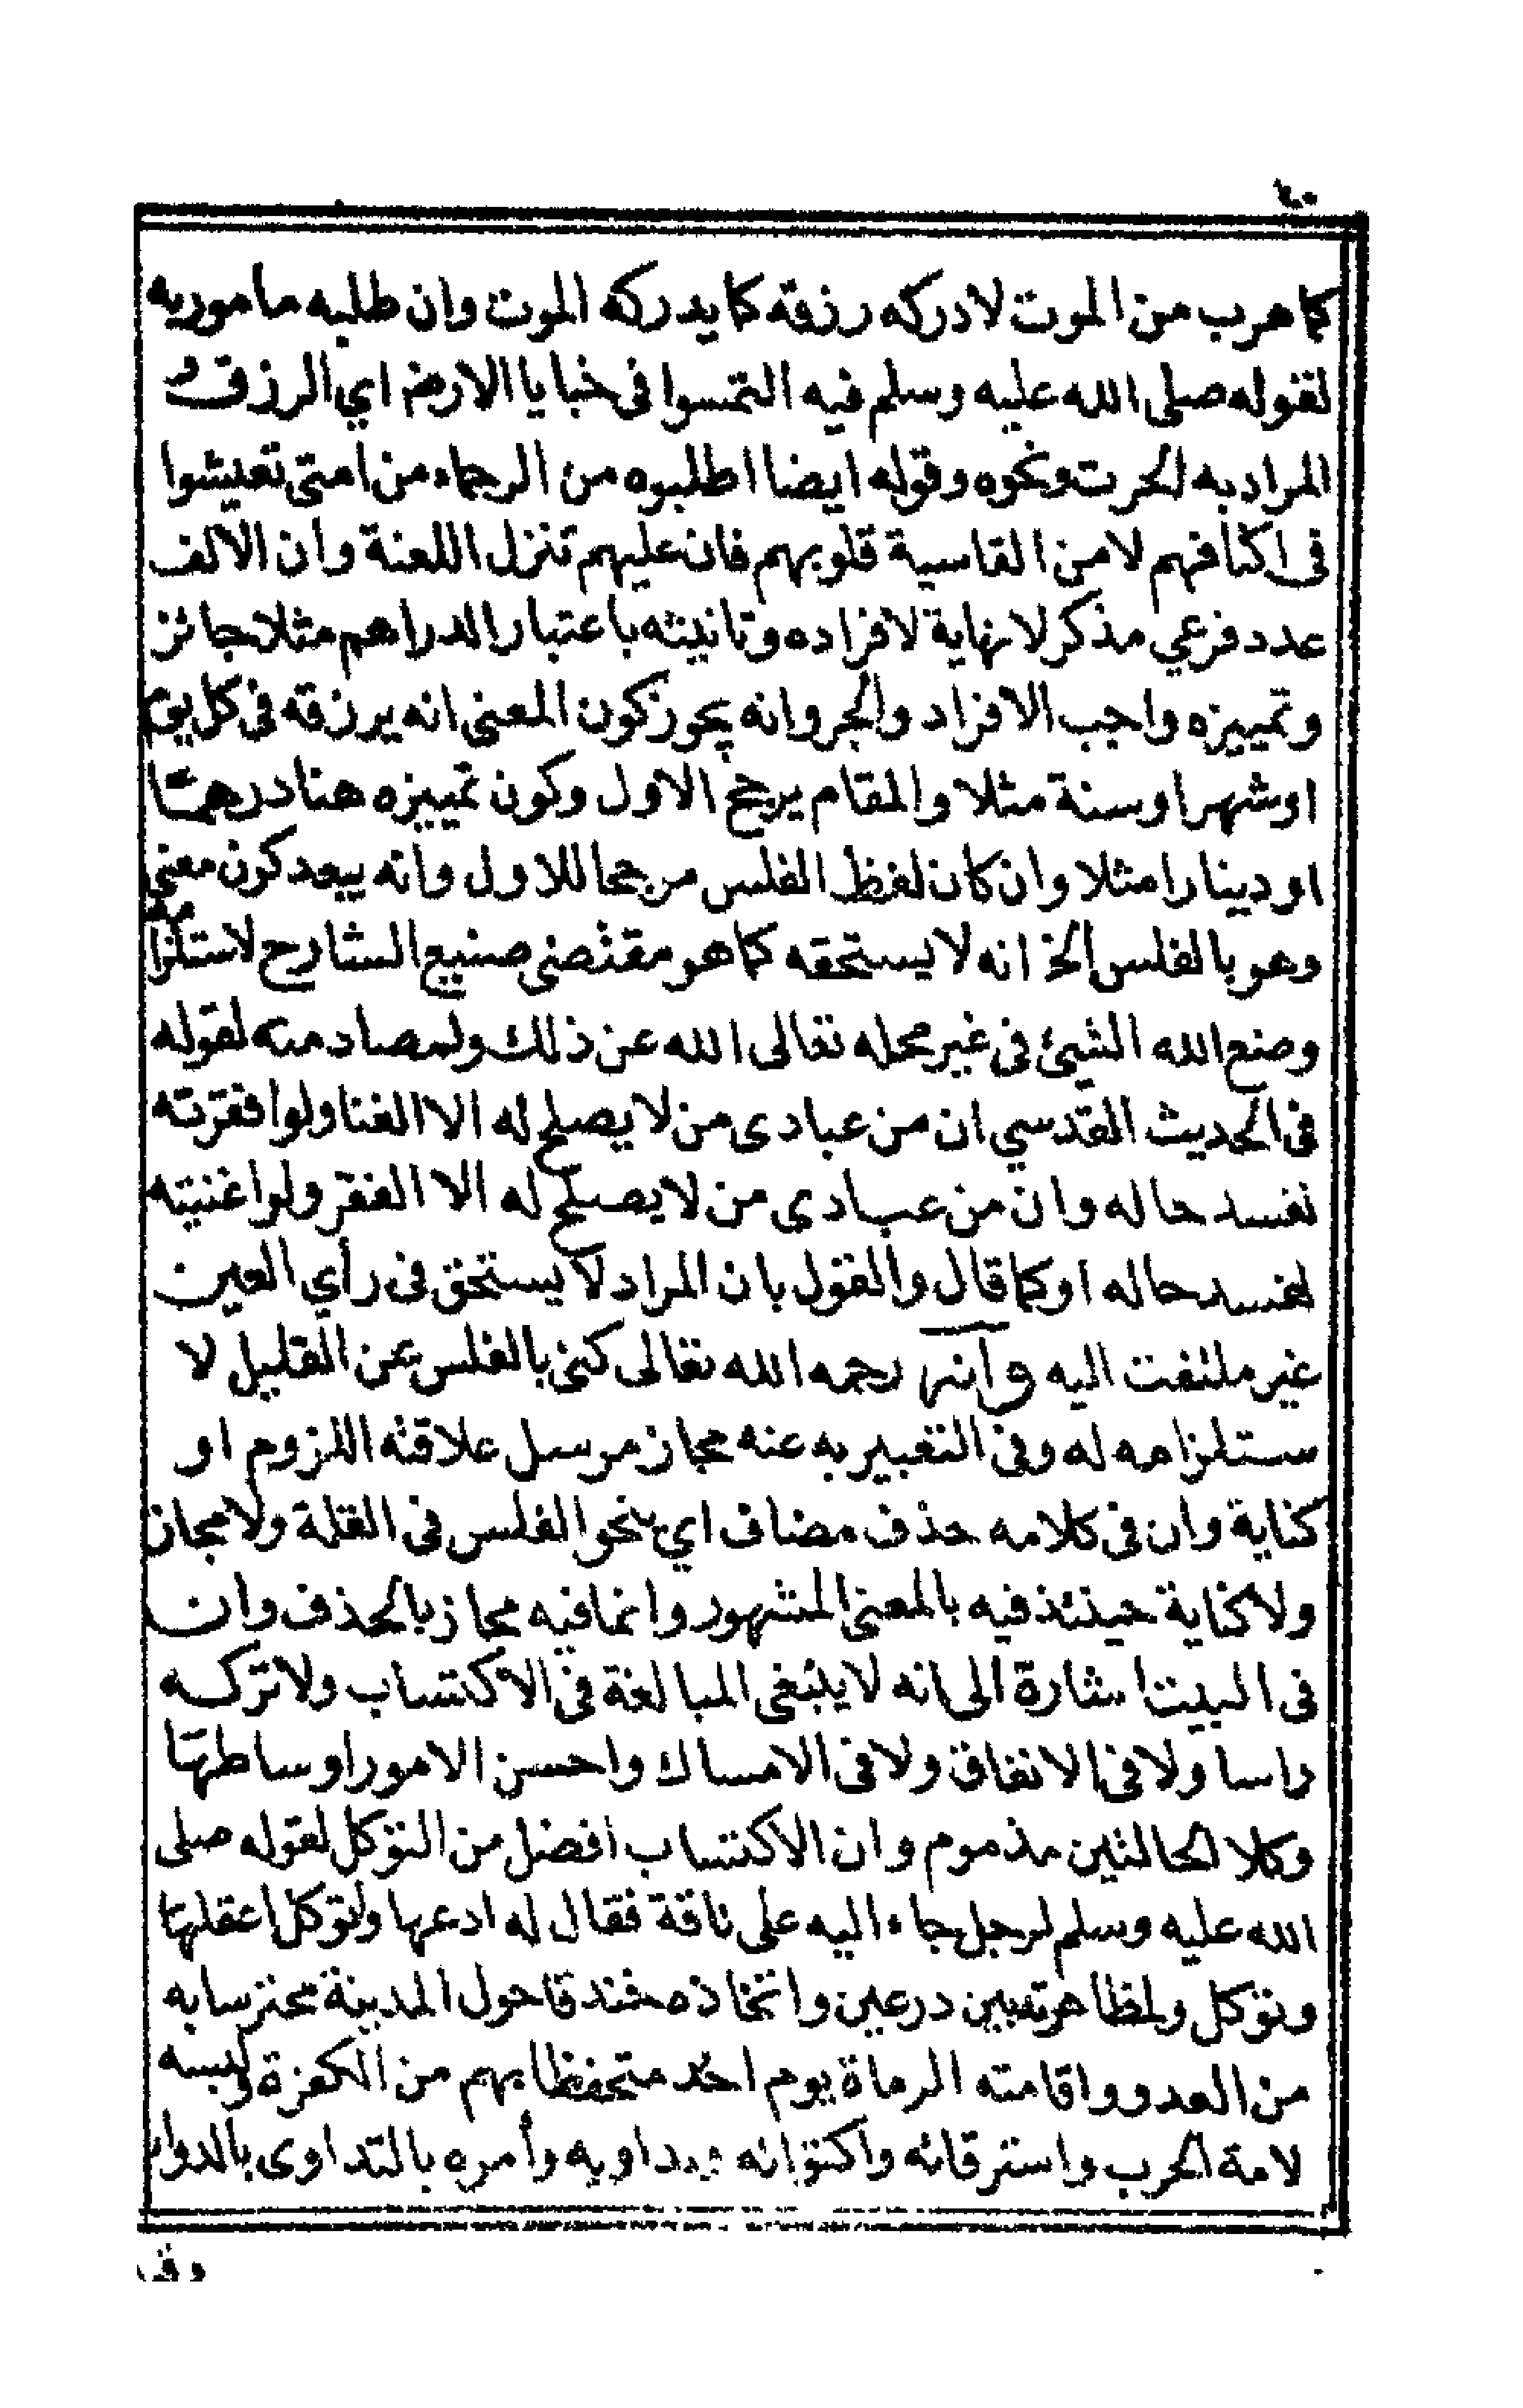 ٤٠
كما هرب من الموت لادركه رزقه كما يدركه الموت وان طلبه مامور به
لقوله صلى الله عليه وسلم فيه التمسوا فى خبايا الارض اي الرزق و
المراد به الحرث ونحوه وقوله ايضا اطلبوه من الرحماء من امتى تعيشوا
فى اكنافهم لا من القاسية قلوبهم فان عليهم تنزل اللعنة وان الالف
عدد فرعي مذكر لا نهاية لافراده وتانيثه باعتبار الدراهم مثلا جائز
وتمييزه واجب الافراد والجر وانه يجوز كون المعنى انه يرزقه فى كل يوم
او شهر او سنة مثلا والمقام يرجح الاول وكون تمييزه هنا درهما
او دينارا مثلا وان كان لفظ الفلس مرجحا للاول وانه يبعد كون معنى
وهو بالفلس الخ انه لا يستحقه كما هو مقتضى صنيع الشارح لاستلزامه
وضع الله الشيئ فى غير محله تعالى الله عن ذلك ولمصادمته لقوله
فى الحديث القدسي ان من عبادى من لا يصلح له الا الغنا ولو افقرته
لفسد حاله وان من عبادي من لا يصلح له الا الفقر ولو اغنيته
لفسد حاله او كما قال والقول بان المراد لا يستحق فى رأي العين
غير ملتفت اليه وانه رحمه الله تعالى كنى بالفلس عن القليل لا
ستلزامه له وفى التعبير به عنه مجاز مرسل علاقته اللزوم او
كناية وان فى كلامه حذف مضاف اي بنحو الفلس فى القلة ولا مجاز
ولا كناية حينئذ فيه بالمعنى المشهور وانما فيه مجاز بالحذف وان
فى البيت اشارة الى انه لا ينبغى المبالغة فى الاكتساب ولا تركه
راسا ولا فى الانفاق ولا فى الامساك واحسن الامور اوساطها
وكلا الحالتين مذموم وان الاكتساب افضل من التوكل لقوله صلى
الله عليه وسلم لرجل جاء اليه على ناقة فقال له ادعها وتوكل اعقلها
وتوكل ولمظاهرته بين درعين واتخاذه خندقا حول المدينة محترسا به
من العدو واقامته الرماة يوم احد متحفظا بهم من الكفرة ولبسه
لامة الحرب واسترقائه واكتوائه وأمره بالتداوى بالدواء